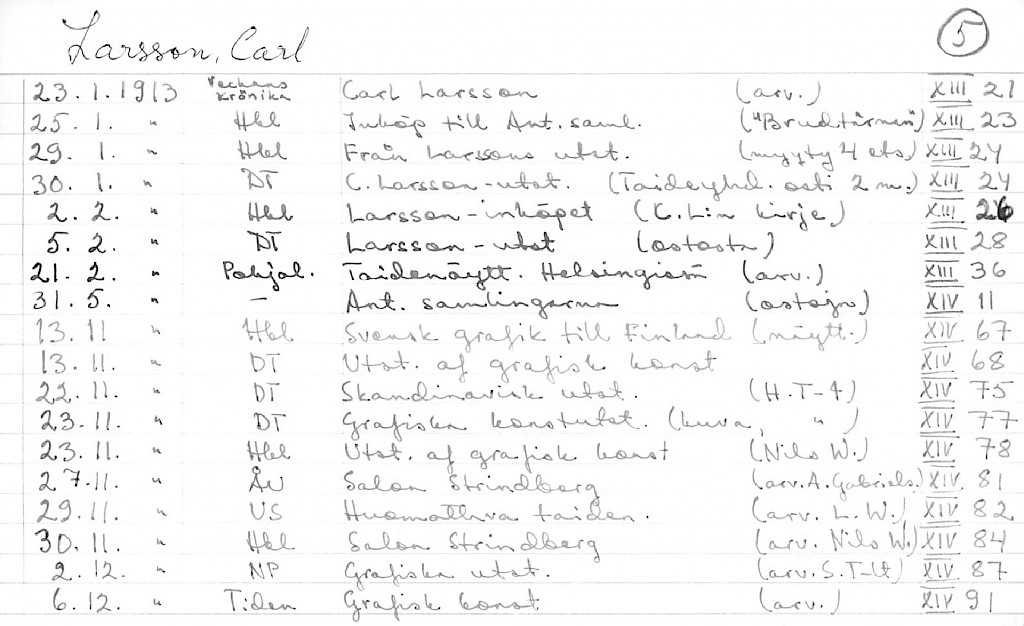 Larsson, Carl 5
23.1.1913 Veckans Krönika Carl Larsson (arv.) XIII 21
25. 1. " Hbl Inköp till Ant. saml. ("Brudtärnan") XIII 23
29. 1. " Hbl Från Larssons utst. (myyty 4 ets.) XIII 24
30. 1. " DT C. Larsson-utst. (Taideyhd. osti 2 m.) XIII 24
2. 2. " Hbl Larsson-inköpet (C.L:n kirje) XIII 26
5. 2. " DT Larsson-utst (ostosta) XIII 28
21. 2. " Pohjal. Taidenäytt. Helsingissä (arv.) XIII 36
31. 5. " – Ant. samlingarna (ostoja) XIV 11
13. 11 " Hbl Svensk grafik till Finland (näytt.) XIV 67
13. 11. " DT Utst. af grafisk konst XIV 68
22. 11. " DT Skandinavisk utst. (H.T-t) XIV 75
23. 11. " DT Grafiska konstutst. (kuva, " ) XIV 77
23. 11. " Hbl Utst. af grafisk konst (Nils W.) XIV 78
27. 11. " ÅU Salon Strindberg (arv. A. Gabriels.) XIV 81
29. 11. " US Huomattava taiden. (arv. L.W.) XIV 82
30. 11. " Hbl Salon Strindberg (arv. Nils W.) XIV 84
2. 12. " NP Grafiska utst. (arv. S.T-lt) XIV 87
6. 12. " Tiden Grafisk konst (arv.) XIV 91